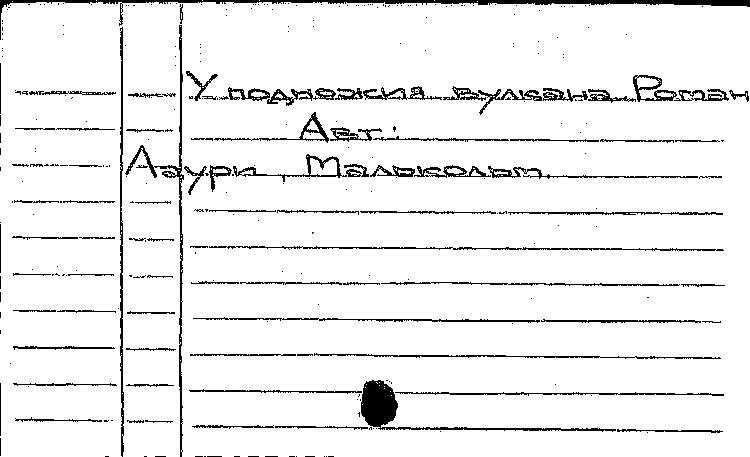 У подножия вулкана Роман
Авт:
Лаури, Малькольм.